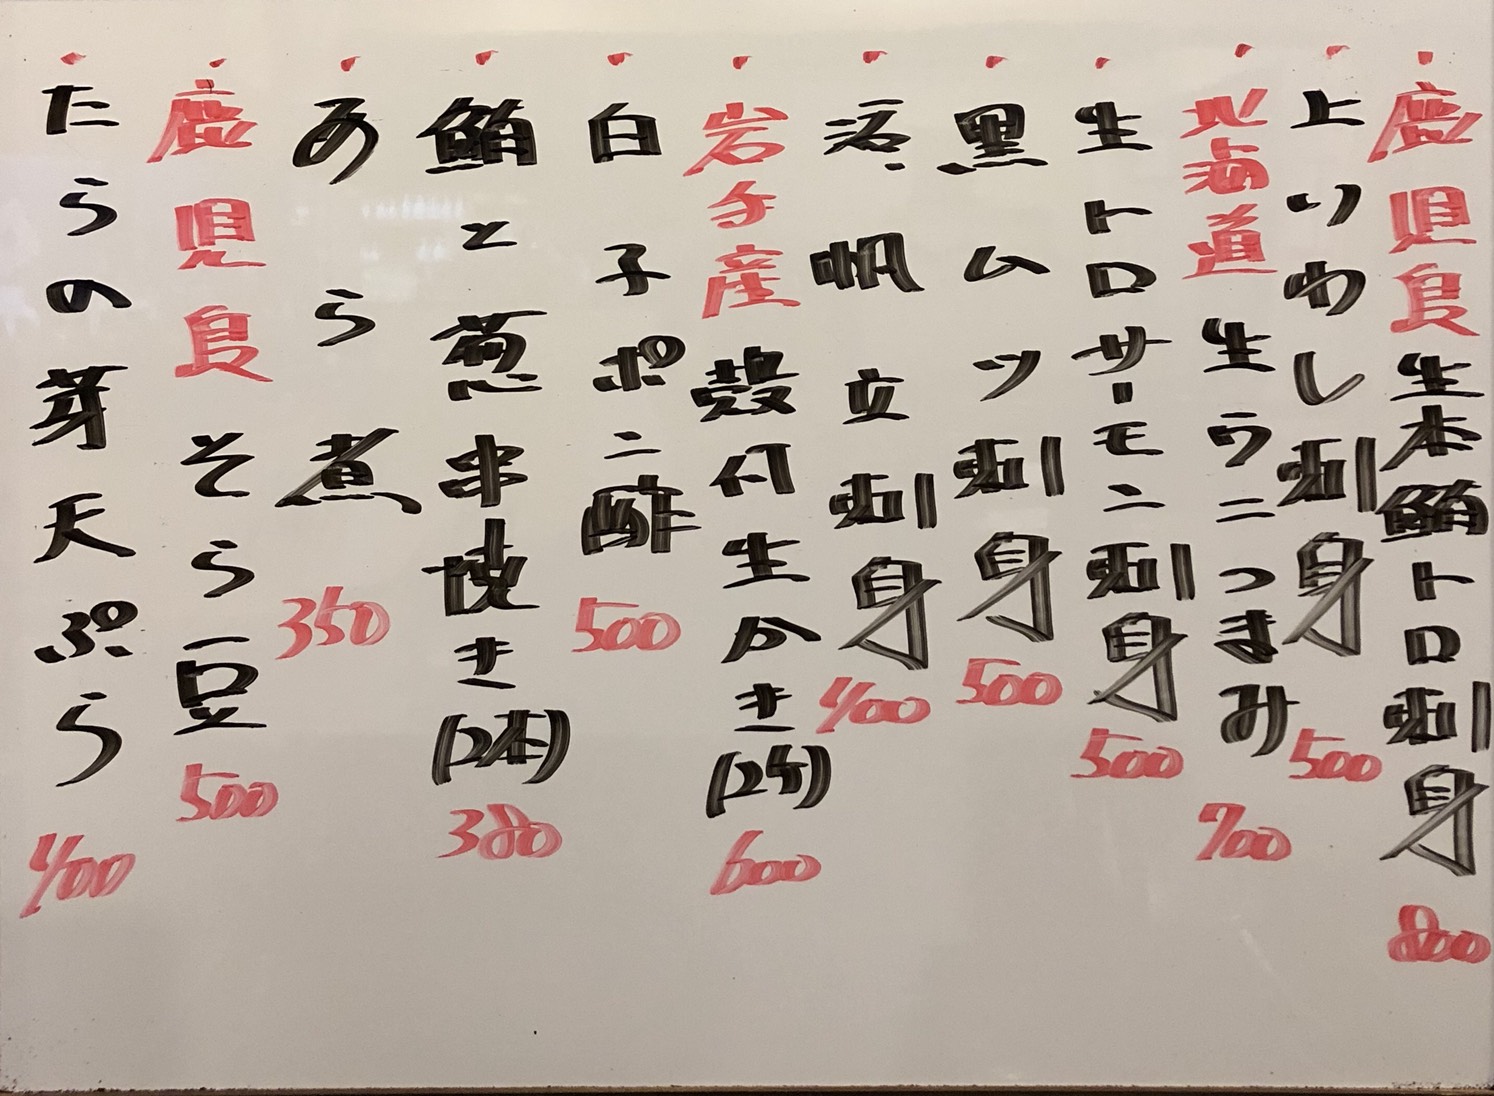 ・鹿児島生本鮪トロ刺身 800
・上いわし刺身 500
・北海道生ウニつまみ 700
・生トロサーモン刺身 500
・黒ムツ刺身 500
・活帆立刺身 400
・岩手産殻付生かき(2ケ) 600
・白子ポン酢 500
・鮪と葱串焼き(2本) 380
・あら煮 350
・鹿児島そら豆 500
・たらの芽天ぷら 400